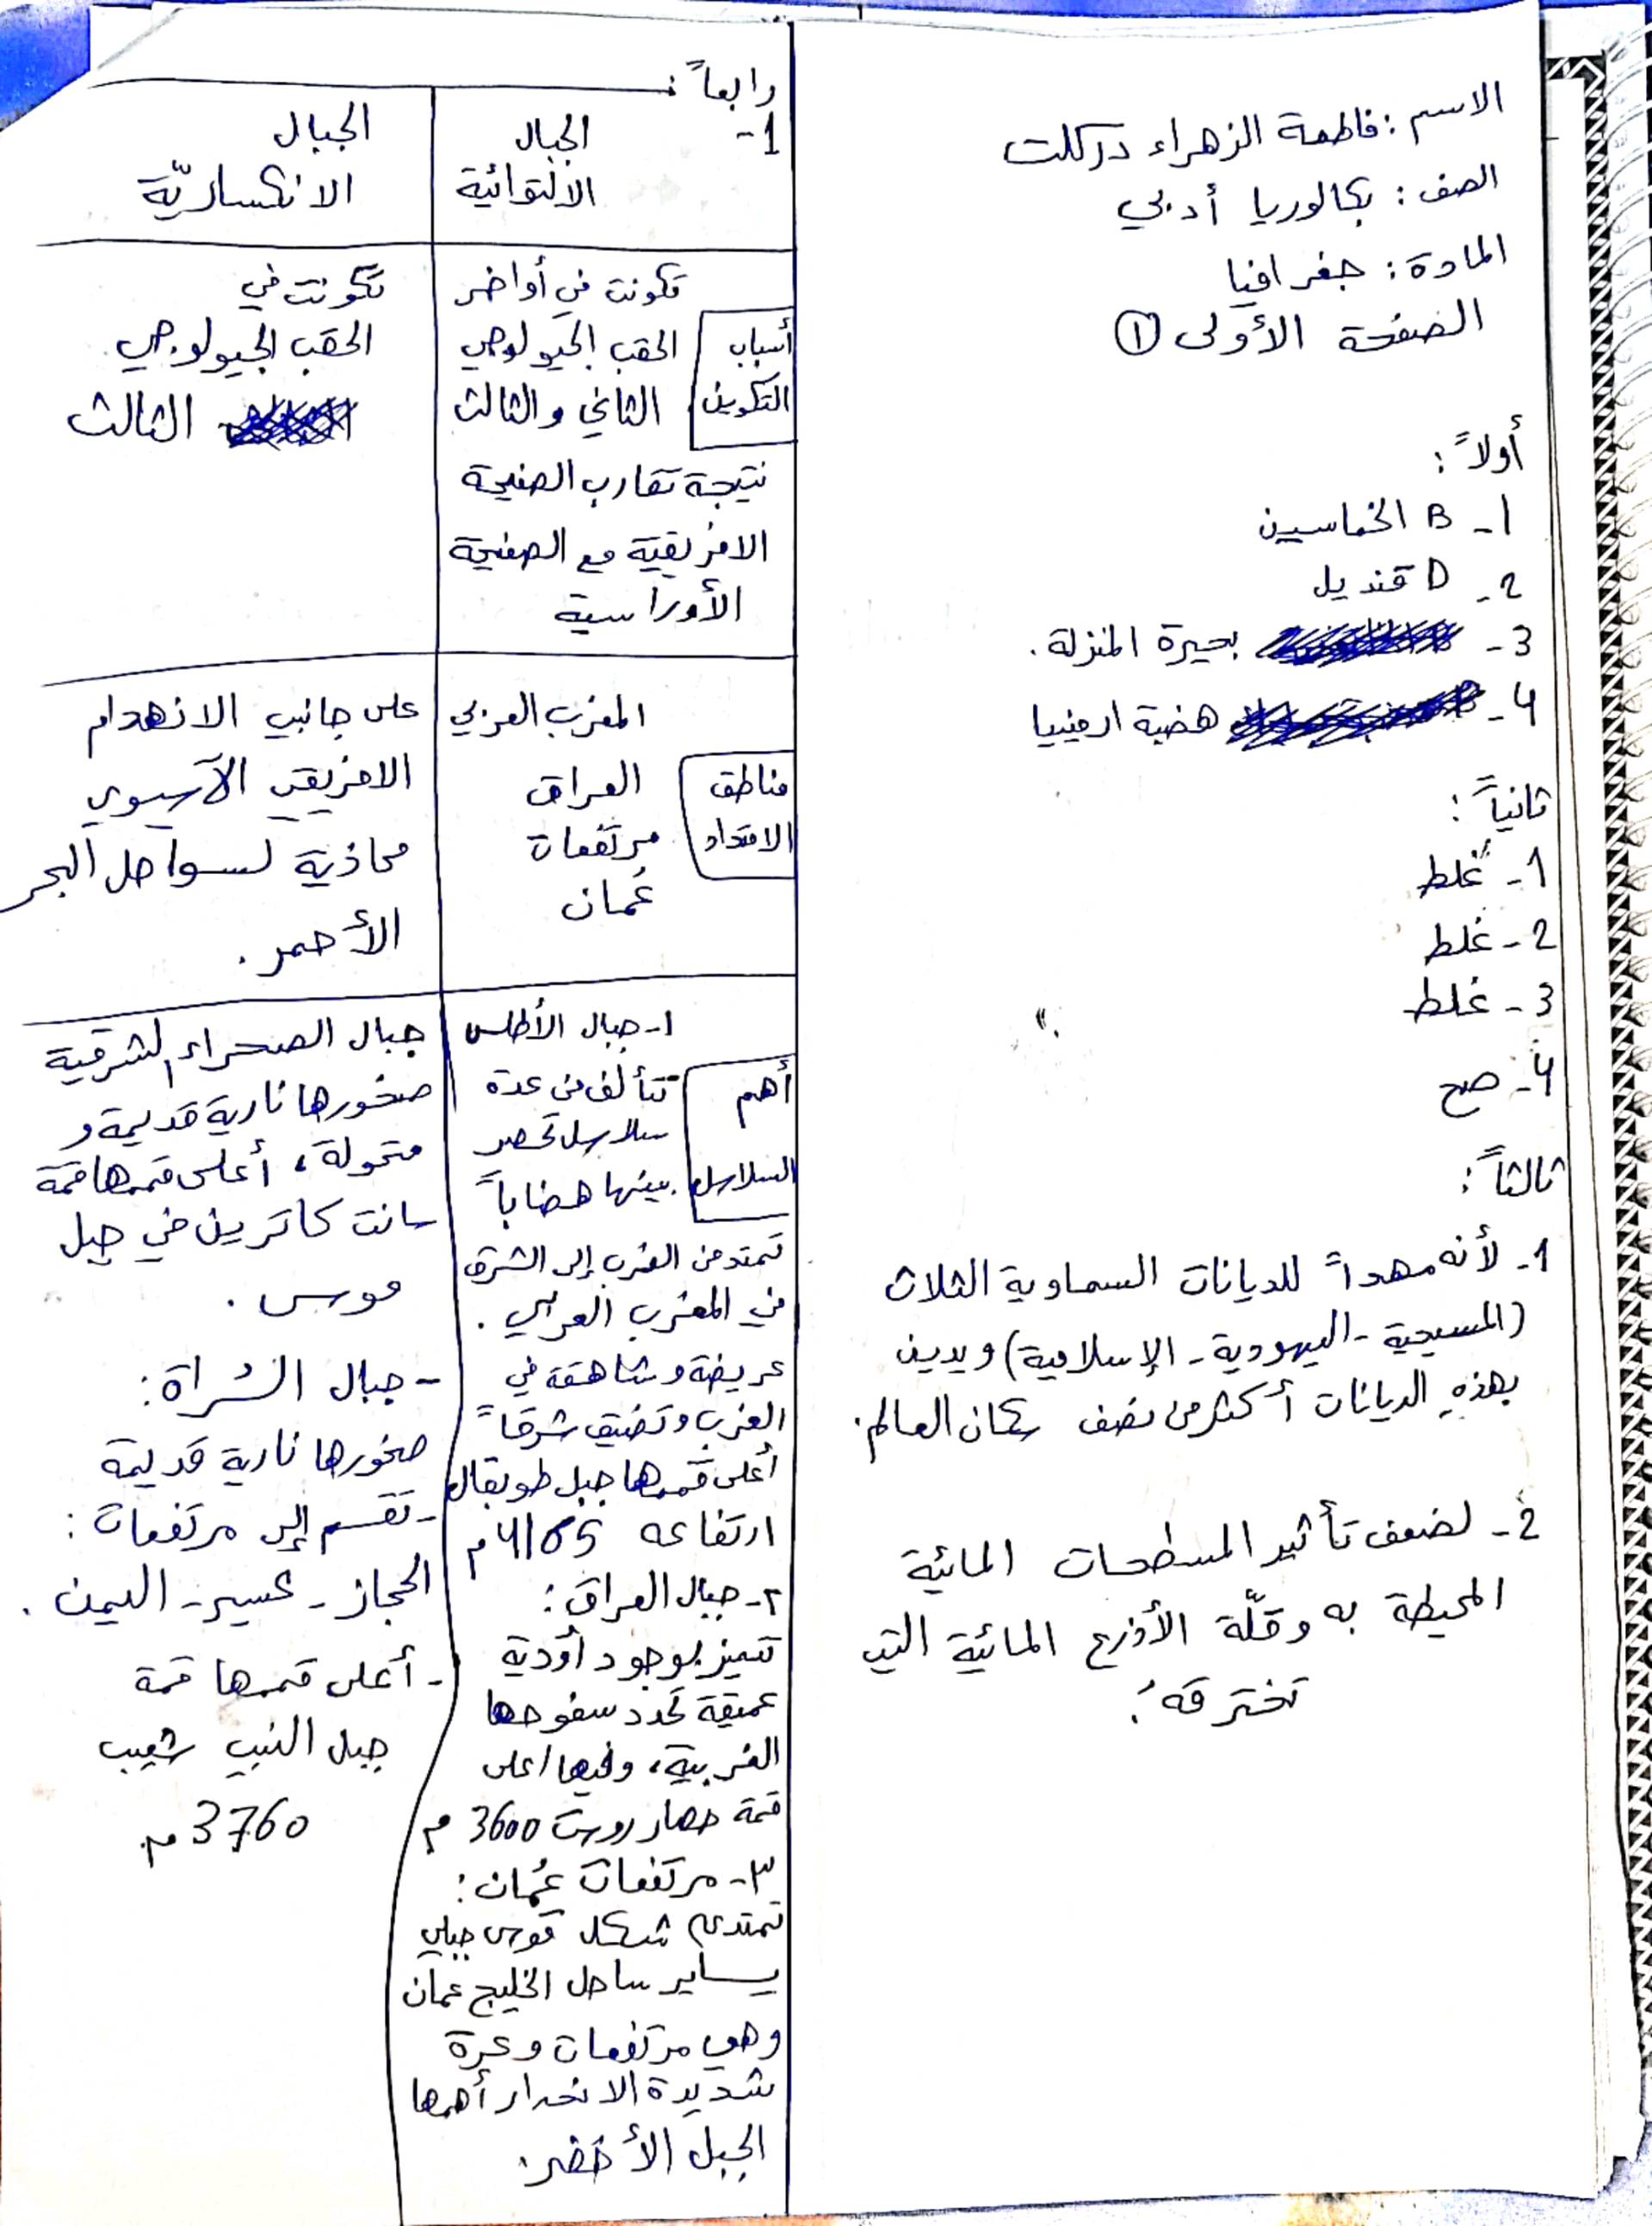 الاسم : فاطمة الزهراء دركلت
الصف : بكالوريا أدبي
المادة : جغرافيا
الصفحة الأولى ①
أولاً :
1- B الخماسين
2- D قنديل
3- بحيرة المنزلة .
4- هضبة ارمينيا
ثانياً :
1- غلط
2- غلط
3- غلط
4- صح
ثالثاً :
1- لأنه مهداً للديانات السماوية الثلاث
(المسيحية - اليهودية - الإسلامية) ويدين
بهذه الديانات أكثر من نصف سكان العالم .
2- لضعف تأثير المسطحات المائية
المحيطة به وقلّة الأذرع المائية التي
تخترقه .
رابعاً :
1-
الجبال
الالتوائية
أسباب
التكوين
تكونت في أواخر
الحقب الجيولوجي
الثاني والثالث
نتيجة تقارب الصفيحة
الافريقية مع الصفيحة
الأوراسية
مناطق
الامتداد
المغرب العربي
العراق
مرتفعات
عُمان
أهم
السلاسل
1- جبال الأطلس
تتألف من عدة
سلاسل تحصر
بينها هضاباً
تمتد من الغرب إلى الشرق
في المغرب العربي .
عريضة وشاهقة في
الغرب وتضيق شرقاً
أعلى قممها جبل طوبقال
ارتفاعه 4165 م
٢- جبال العراق :
تتميز بوجود أودية
عميقة تحدد سفوحها
الغربية ، وفيها اعلى
قمة حصار روست 3600 م
٣- مرتفعات عُمان :
تمتد على شكل قوس جبلي
يساير ساحل الخليج عمان
وهي مرتفعات وعرة
شديدة الانحدار أهمها
الجبل الأخضر .
الجبال
الانكساريّة
تكونت في
الحقب الجيولوجي
الثالث
على جانبي الانهدام
الافريقي الآسيوي
محاذية لسواحل البحر
الأحمر .
جبال الصحراء الشرقية
صخورها نارية قديمة و
متحولة ، أعلى قممها قمة
سانت كاترين في جبل
موسى .
- جبال السُراة :
صخورها نارية قديمة
- تقسم إلى مرتفعات :
الحجاز - عسير - اليمن .
- أعلى قممها قمة
جبل النبي شعيب
3760 م